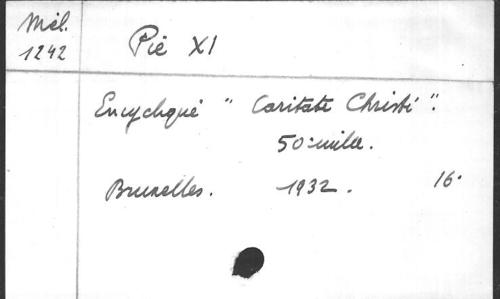 Mél.
1242
Pie XI
Encyclique "Caritate Christi".
50e mille.
Bruxelles. 1932. 16°